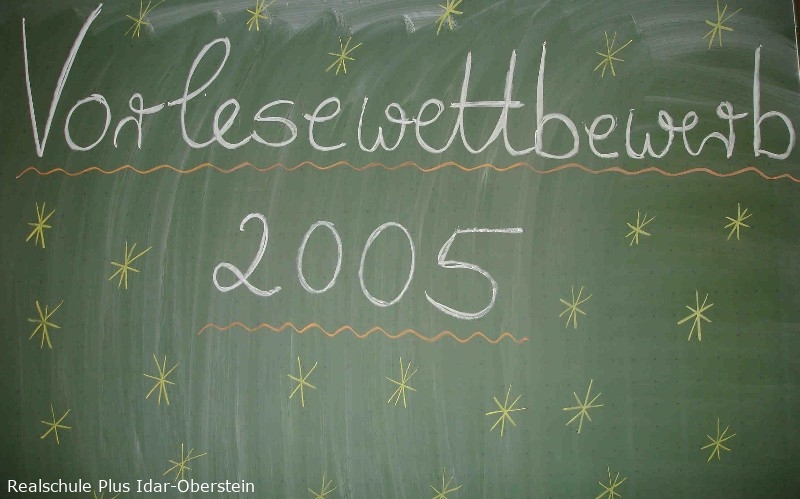 Vorlesewettbewerb
2005
Realschule Plus Idar-Oberstein